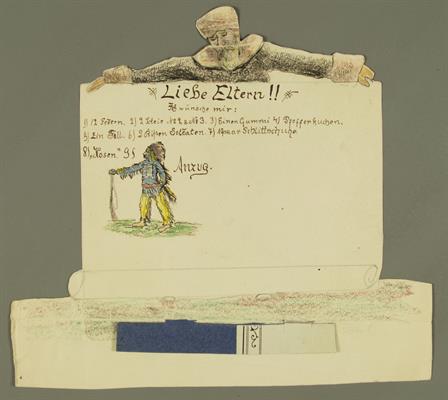 Liebe Eltern!!
Ich wünsche mir:
1) 12 Federn. 2) 2 Bleie No 2 & No 3. 3) Einen Gummi 4) Pfefferkuchen.
5) Ein Ball. 6) 2 Soldaten. 7) 1 paar Schlittschuhe
8) „Hosen" 9)
Anzug.